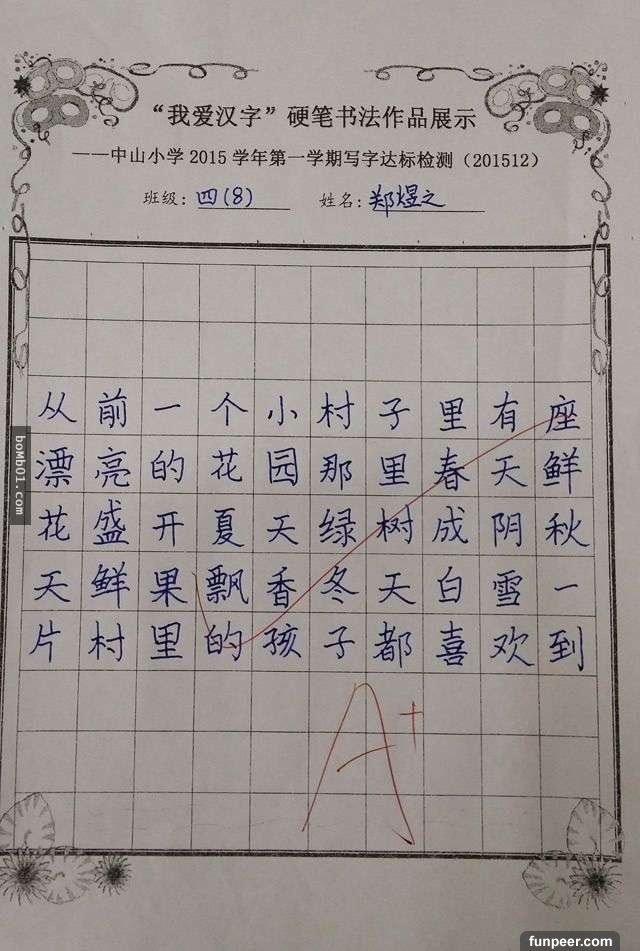 “我爱汉字”硬笔书法作品展示
——中山小学2015学年第一学期写字达标检测（201512）
班级：四(8) 姓名：郑煜之
从前一个小村子里有座
漂亮的花园那里春天鲜
花盛开夏天绿树成阴秋
天鲜果飘香冬天白雪一
片村里的孩子都喜欢到
A+
bomb01.com
funpeer.com